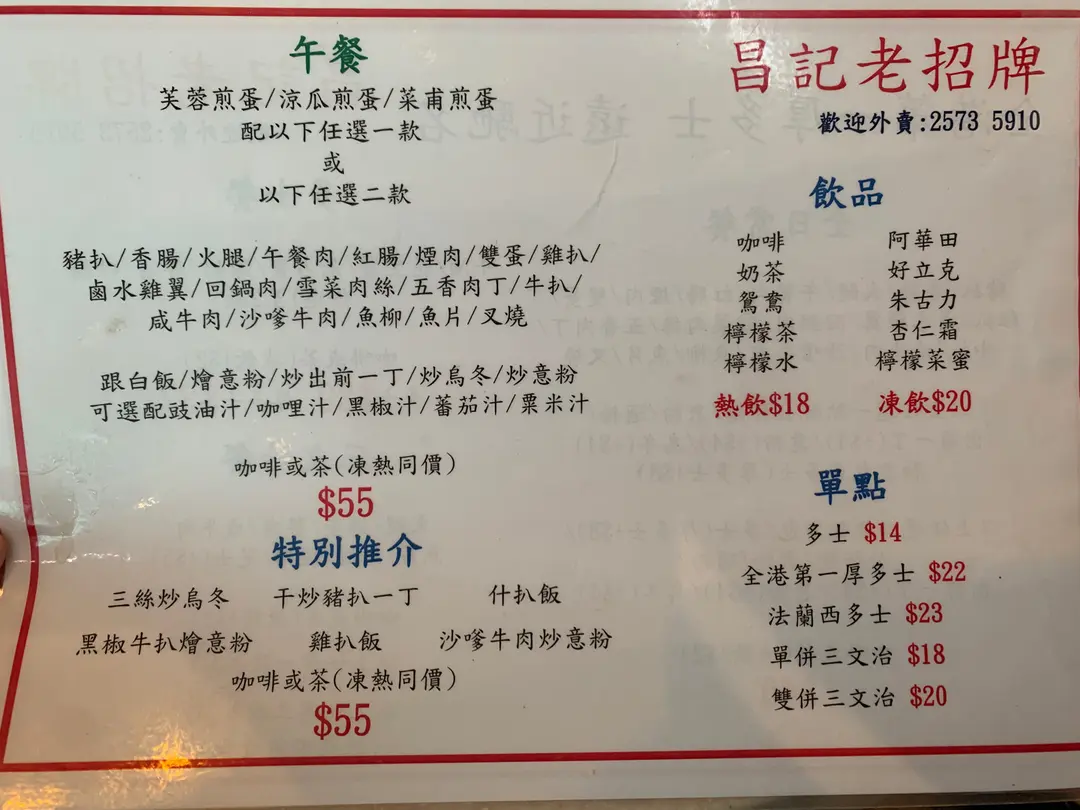 午餐
芙蓉煎蛋/涼瓜煎蛋/菜甫煎蛋
配以下任選一款
或
以下任選二款
豬扒/香腸/火腿/午餐肉/紅腸/煙肉/雙蛋/雞扒/
鹵水雞翼/回鍋肉/雪菜肉絲/五香肉丁/牛扒/
咸牛肉/沙嗲牛肉/魚柳/魚片/叉燒
跟白飯/燴意粉/炒出前一丁/炒烏冬/炒意粉
可選配豉油汁/咖哩汁/黑椒汁/蕃茄汁/粟米汁
咖啡或茶(凍熱同價)
$55
特別推介
三絲炒烏冬 干炒豬扒一丁 什扒飯
黑椒牛扒燴意粉 雞扒飯 沙嗲牛肉炒意粉
咖啡或茶(凍熱同價)
$55
昌記老招牌
歡迎外賣:2573 5910
飲品
咖啡 阿華田
奶茶 好立克
鴛鴦 朱古力
檸檬茶 杏仁霜
檸檬水 檸檬菜蜜
熱飲$18 凍飲$20
單點
多士 $14
全港第一厚多士 $22
法蘭西多士 $23
單併三文治 $18
雙併三文治 $20